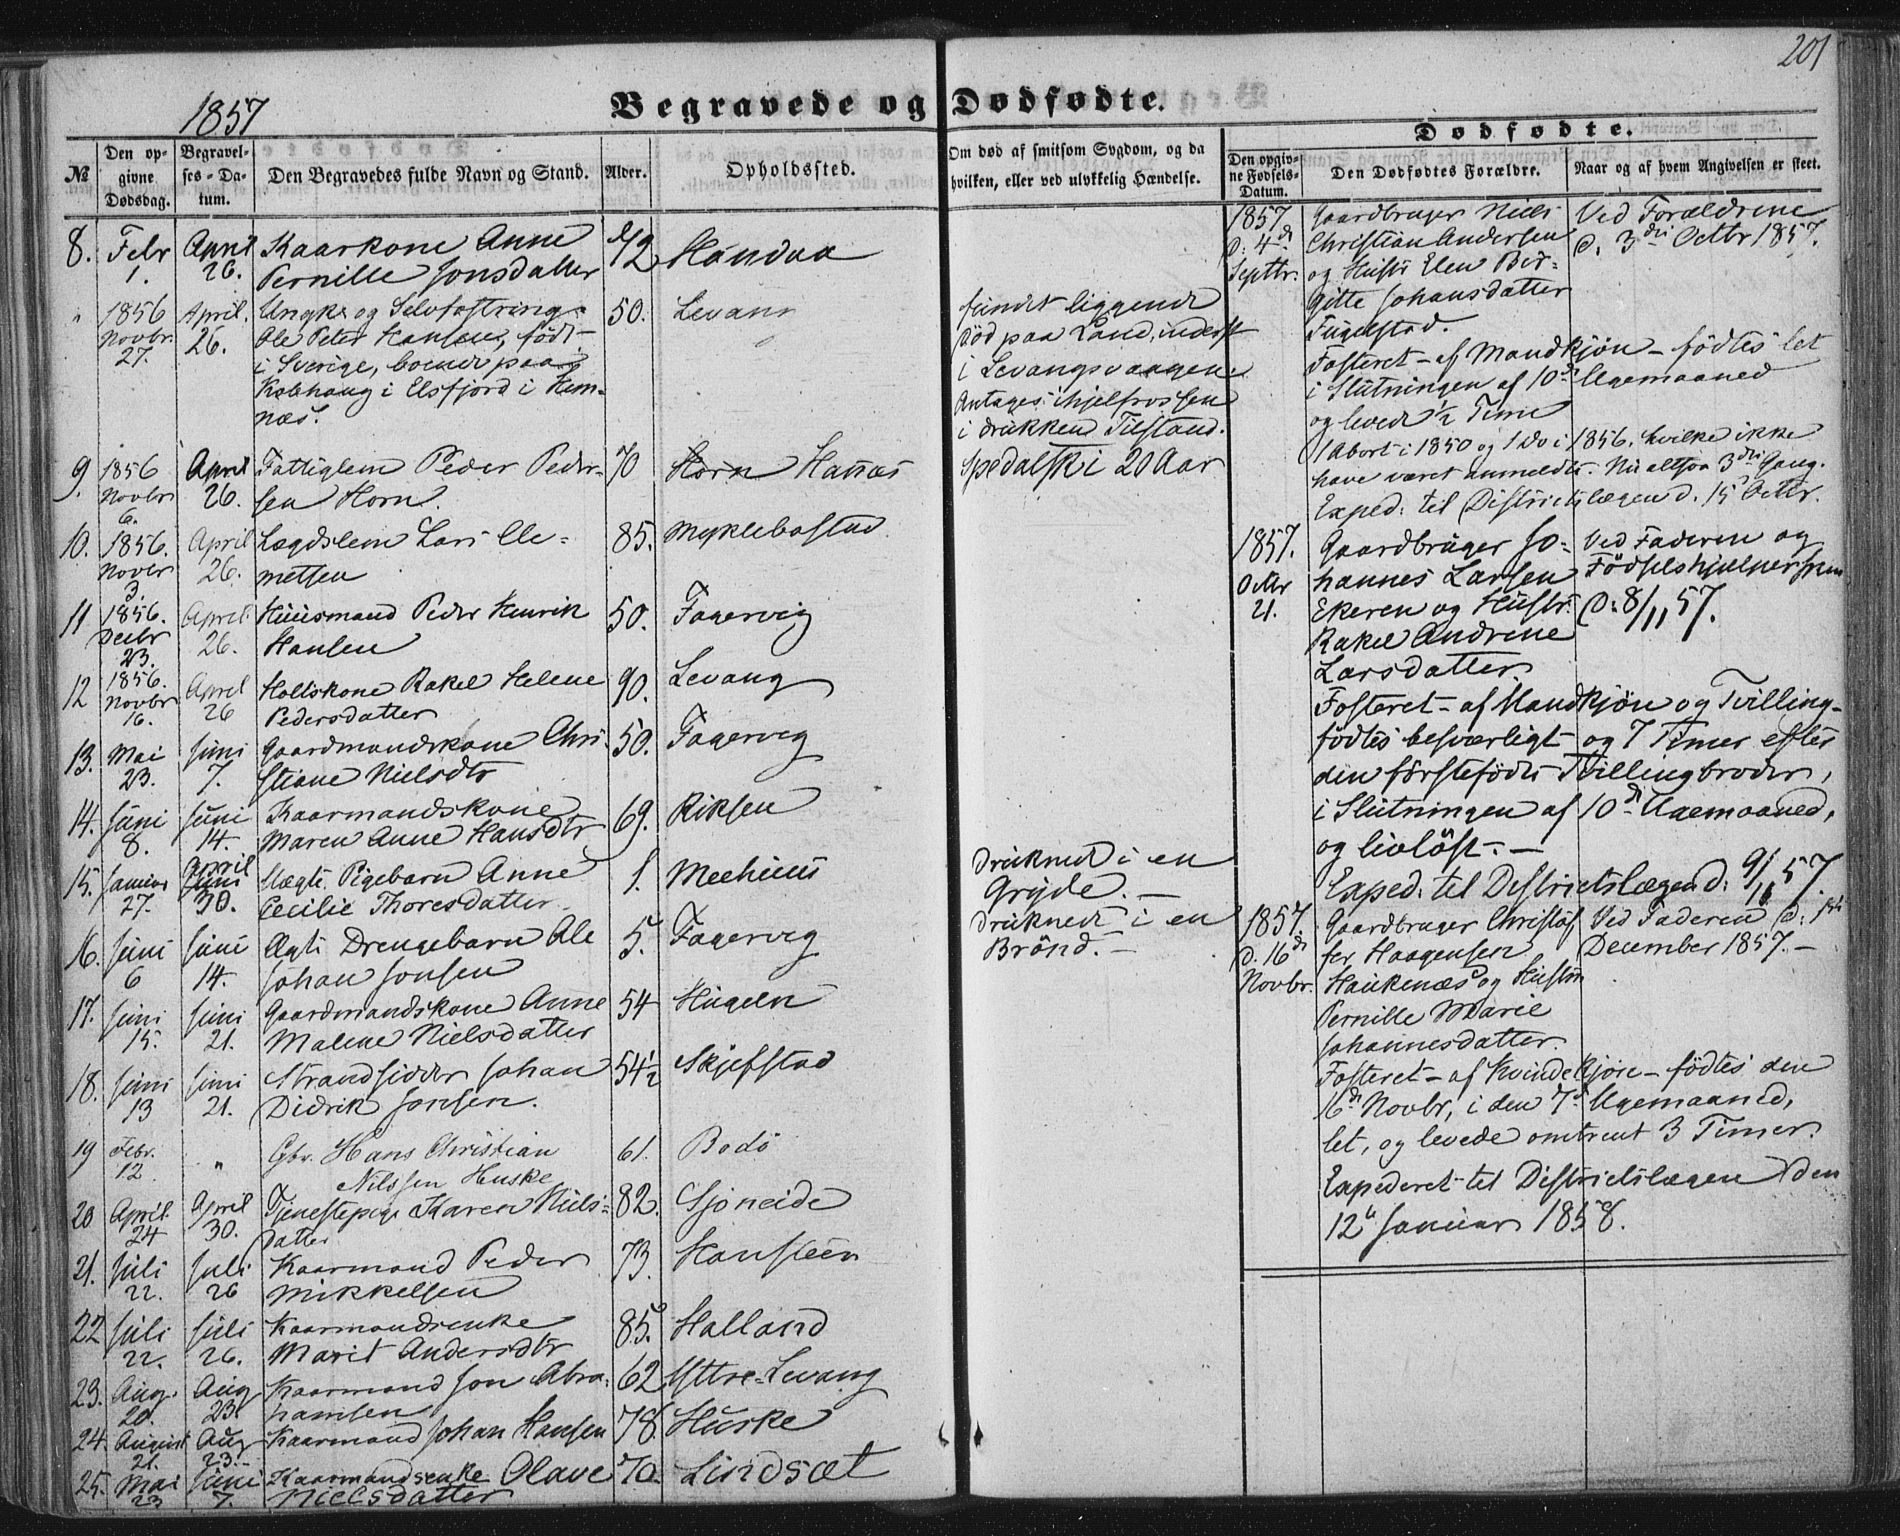 201
1857
Begravede og Dødfødte.
№
Den opgivne Dødsdag.
Begravelses-Datum.
Den Begravedes fulde Navn og Stand.
Alder.
Opholdssted.
Om død af smitsom Sygdom, og da
hvilken, eller ved ulykkelig Hændelse.
8. Febr 1. April 26. Kaarkone Anne
Pernille Jonsdatter
42 Handaa
" 1856 Novbr 27. April 26. Ungk. og Selvfostring
Ole Peter Hansen, født
i Sverige, boende paa
Kobhaug i Elsfjord i Hem-
næs.
50. Levang
fundet liggende
død paa Land, inderst
i Levangsvaagen
Antages ihjelfrossen
i drukken Tilstand.
9. 1856 Novbr 6. April 26. Fattiglem Peder Peder-
sen Horn.
70 Horn Hanæs
Spedalsk i 20 Aar
10. 1856. Novbr 3. April 26. Lægdslem Lars Cle-
metsen
85. Myklebostad
11 1856. Decbr 23. April 26. Huusmand Peder Henrik
Hansen
50. Fagervig
12 1856. Novbr 16. April 26 Holtskone Rakel Helene
Pedersdatter
90. Levang
13. Mai 23. Juni 7. Gaardmandskone Chri-
stiane Nielsdtr
50. Fagervig
14. Juni 8. Juni 14. Kaarmandskone
Maren Anne Hansdtr
69. Riksen
15. Januar 27. April Juni 30. Uægte Pigebarn Anne
Cecilie Thoresdatter
1. Meehuus
Druknet i en
Gryde. —
16. Juni 6 Juni 14. Ægte Drengebarn Ole
Johan Jonsen
5. Fagervig
Druknet i en
Brønd. —
17. Juni 15. Juni 21. Gaardmandskone Anne
Malene Nielsdatter
54 Hugeln
18. Juni 13 Juni 21. Strandsidder Johan
Didrik Jonsen.
54½ Skjefstad
19 Febr. 12 " Gbr. Hans Christian
Nilssen Huske
61. Bodø
20 April 24 April 30. Tjenestepige Karen Niels-
datter
82. Sjoneide
21. Juli 22. Juli 26 Kaarmand Peder
Mikkelsen
73. Hansteen
22 Juli 22. Juli 26. Kaarmandsenke
Marit Andersdtr
85. Halland
23. Aug. 20. Aug 23. Kaarmand Jon Abra-
hamsen
62 Yttre-Levang
24. August 21. Aug 23. Kaarmand Johan Hansen 78. Huske
25. Mai 23 Juni 7. Kaarmandsenke Olave
Nielsdatter
70. Lindsæt
Dødfødte.
Den opgivne Fødsels-Datum.
Den Dødfødtes Forældre.
Naar og af hvem Angivelsen er skeet.
1857 d. 4de Septbr. Gaardbruger Niels
Christian Andersen
og Hustr Elen Bir-
gitte Johansdatter
Fugelstad.
Ved Forældrene
d. 3die Octbr 1857.
Fosteret — af Mandkjøn — fødtes let
i Slutningen af 10de Ugemaaned
og levede ½ Time
1 Abort i 1850 og 1 Do i 1856, hvilke ikke
have været anmeldte. Nu altsaa 3die Gang.
Exped: til Districtslægen d. 15 Octbr.
1857. Octbr 21. Gaardbruger Jo-
hannes Larsen
Ekeren og Hustr:
Rakel Andrine
Larsdatter
Ved Faderen og
Fødselshjelpersken
d: 8/11 57.
Fosteret — af Mandkjøn og Tvilling —
fødtes besværligt og 7 Timer efter
den førstefødte Tvillingbroder,
i Slutningen af 10de Ugemaaned,
og livløst. —
Exped: til Districtslægen d: 9/11 57.
1857. d. 16de Novbr. Gaardbruger Christof-
fer Haagensen
Haukenæs og Hustru
Pernille Marie
Johannesdatter.
Ved Faderen d: 1ste
December 1857. —
Fosteret — af Kvindekjøn — fødtes den
16de Novbr, i den 7de Ugemaaned,
let, og levede omtrent 3 Timer.
Expederet til Districtslægen den
12te Januar 1858.